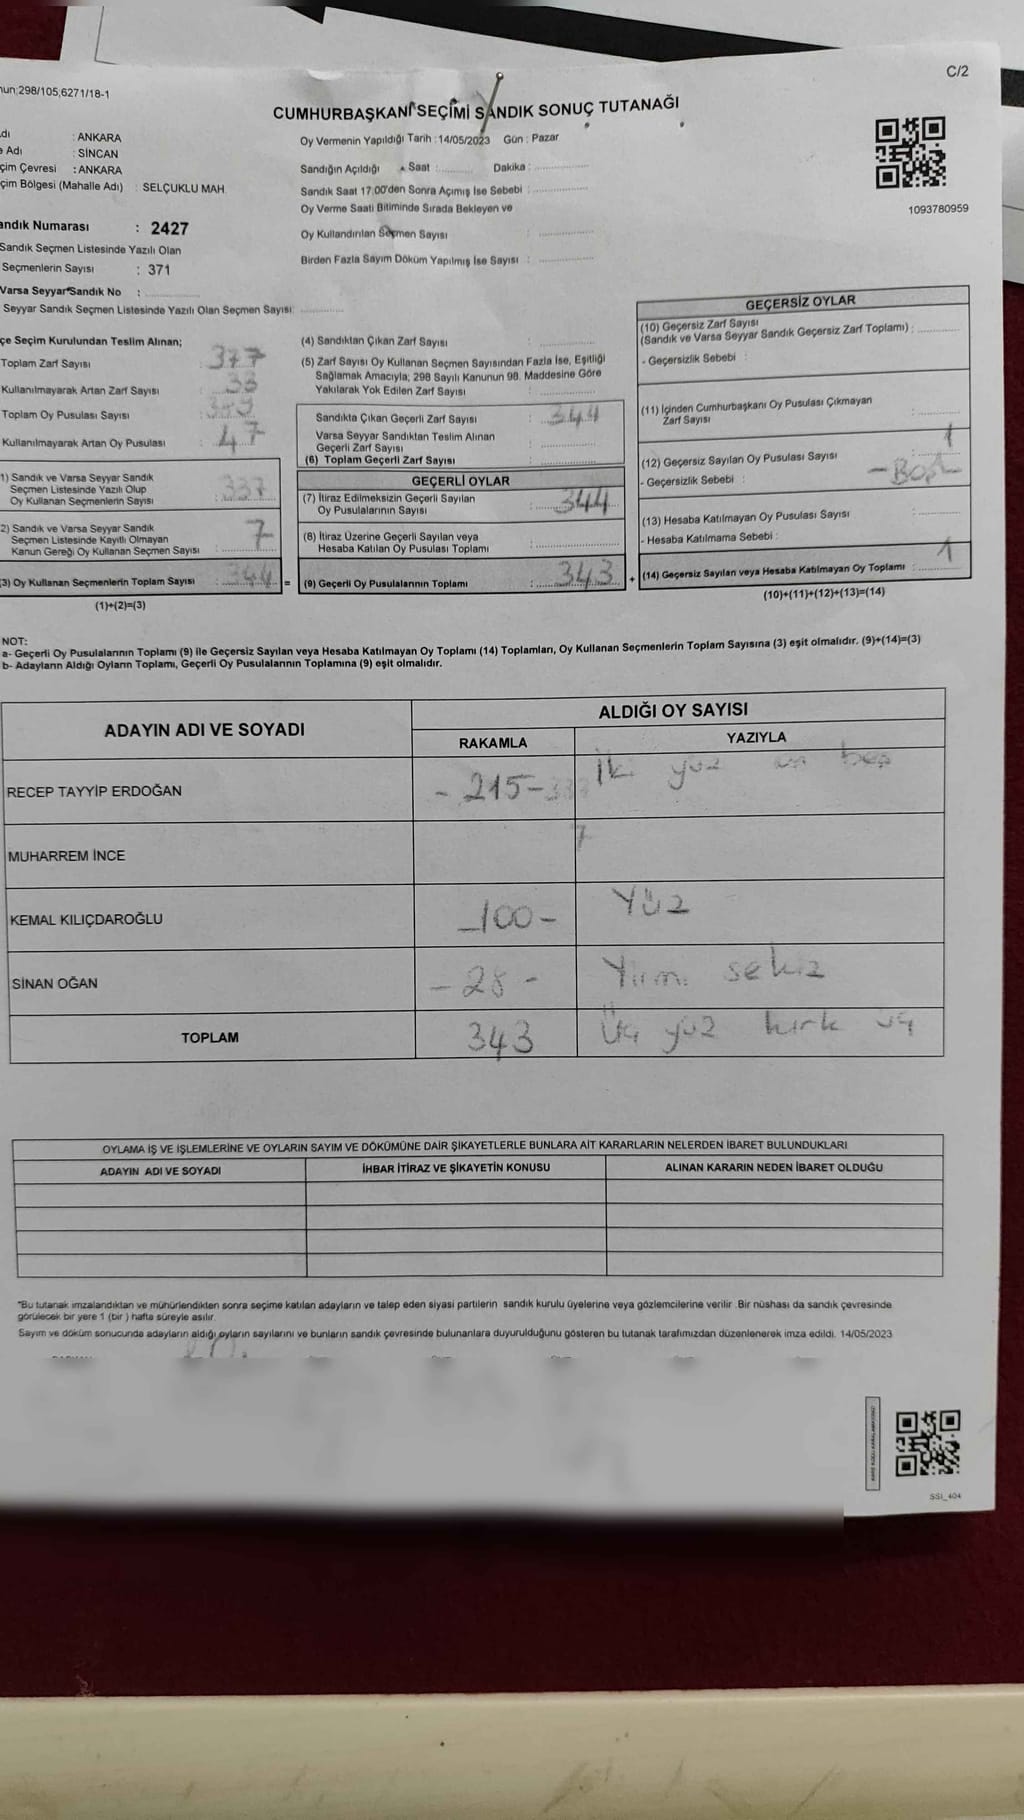 C/2
nun;298/105,6271/18-1
CUMHURBAŞKANI SEÇİMİ SANDIK SONUÇ TUTANAĞI
dı : ANKARA
e Adı : SİNCAN
çim Çevresi : ANKARA
çim Bölgesi (Mahalle Adı) : SELÇUKLU MAH
Oy Vermenin Yapıldığı Tarih : 14/05/2023 Gün : Pazar
Sandığın Açıldığı Saat : Dakika :
Sandık Saat 17:00'den Sonra Açımış İse Sebebi :
Oy Verme Saati Bitiminde Sırada Bekleyen ve
Oy Kullandırılan Seçmen Sayısı :
Birden Fazla Sayım Döküm Yapılmış İse Sayısı :
1093780959
andık Numarası : 2427
Sandık Seçmen Listesinde Yazılı Olan
Seçmenlerin Sayısı : 371
Varsa Seyyar Sandık No :
Seyyar Sandık Seçmen Listesinde Yazılı Olan Seçmen Sayısı:
çe Seçim Kurulundan Teslim Alınan;
Toplam Zarf Sayısı : 377
Kullanılmayarak Artan Zarf Sayısı : 33
Toplam Oy Pusulası Sayısı :
Kullanılmayarak Artan Oy Pusulası : 47
1) Sandık ve Varsa Seyyar Sandık
Seçmen Listesinde Yazılı Olup
Oy Kullanan Seçmenlerin Sayısı : 337
2) Sandık ve Varsa Seyyar Sandık
Seçmen Listesinde Kayıtlı Olmayan
Kanun Gereği Oy Kullanan Seçmen Sayısı : 7
(3) Oy Kullanan Seçmenlerin Toplam Sayısı : 344 =
(1)+(2)=(3)
(4) Sandıktan Çıkan Zarf Sayısı :
(5) Zarf Sayısı Oy Kullanan Seçmen Sayısından Fazla İse, Eşitliği
Sağlamak Amacıyla; 298 Sayılı Kanunun 98. Maddesine Göre
Yakılarak Yok Edilen Zarf Sayısı :
Sandıkta Çıkan Geçerli Zarf Sayısı : 344
Varsa Seyyar Sandıktan Teslim Alınan
Geçerli Zarf Sayısı :
(6) Toplam Geçerli Zarf Sayısı :
GEÇERLİ OYLAR
(7) İtiraz Edilmeksizin Geçerli Sayılan
Oy Pusulalarının Sayısı : 344
(8) İtiraz Üzerine Geçerli Sayılan veya
Hesaba Katılan Oy Pusulası Toplamı :
(9) Geçerli Oy Pusulalarının Toplamı : 343 +
GEÇERSİZ OYLAR
(10) Geçersiz Zarf Sayısı
(Sandık ve Varsa Seyyar Sandık Geçersiz Zarf Toplamı) :
- Geçersizlik Sebebi :
(11) İçinden Cumhurbaşkanı Oy Pusulası Çıkmayan
Zarf Sayısı :
(12) Geçersiz Sayılan Oy Pusulası Sayısı : 1
- Geçersizlik Sebebi : - Boş
(13) Hesaba Katılmayan Oy Pusulası Sayısı :
- Hesaba Katılmama Sebebi :
(14) Geçersiz Sayılan veya Hesaba Katılmayan Oy Toplamı : 1
(10)+(11)+(12)+(13)=(14)
NOT:
a- Geçerli Oy Pusulalarının Toplamı (9) ile Geçersiz Sayılan veya Hesaba Katılmayan Oy Toplamı (14) Toplamları, Oy Kullanan Seçmenlerin Toplam Sayısına (3) eşit olmalıdır. (9)+(14)=(3)
b- Adayların Aldığı Oyların Toplamı, Geçerli Oy Pusulalarının Toplamına (9) eşit olmalıdır.
ADAYIN ADI VE SOYADI ALDIĞI OY SAYISI
RAKAMLA YAZIYLA
RECEP TAYYİP ERDOĞAN - 215 - İki yüz on beş
MUHARREM İNCE 7
KEMAL KILIÇDAROĞLU - 100 - Yüz
SİNAN OĞAN - 28 - Yirmi sekiz
TOPLAM 343 Üç yüz kırk üç
OYLAMA İŞ VE İŞLEMLERİNE VE OYLARIN SAYIM VE DÖKÜMÜNE DAİR ŞİKAYETLERLE BUNLARA AİT KARARLARIN NELERDEN İBARET BULUNDUKLARI
ADAYIN ADI VE SOYADI İHBAR İTİRAZ VE ŞİKAYETİN KONUSU ALINAN KARARIN NEDEN İBARET OLDUĞU
*Bu tutanak imzalandıktan ve mühürlendikten sonra seçime katılan adayların ve talep eden siyasi partilerin sandık kurulu üyelerine veya gözlemcilerine verilir. Bir nüshası da sandık çevresinde
görülecek bir yere 1 (bir ) hafta süreyle asılır.
Sayım ve döküm sonucunda adayların aldığı oyların sayılarını ve bunların sandık çevresinde bulunanlara duyurulduğunu gösteren bu tutanak tarafımızdan düzenlenerek imza edildi. 14/05/2023
SSI_404